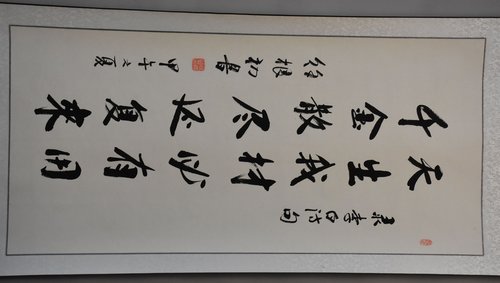 录李白诗句
天生我材必有用
千金散尽还复来
徐根初書 甲午之夏